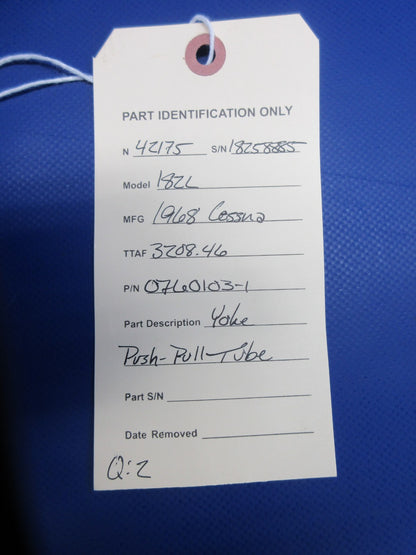 PART IDENTIFICATION ONLY
N 42175 S/N 18258885
Model 182L
MFG 1968 Cessna
TTAF 3208.46
P/N 0760103-1
Part Description Yoke
Push-Pull-Tube
Part S/N
Date Removed
Q:2